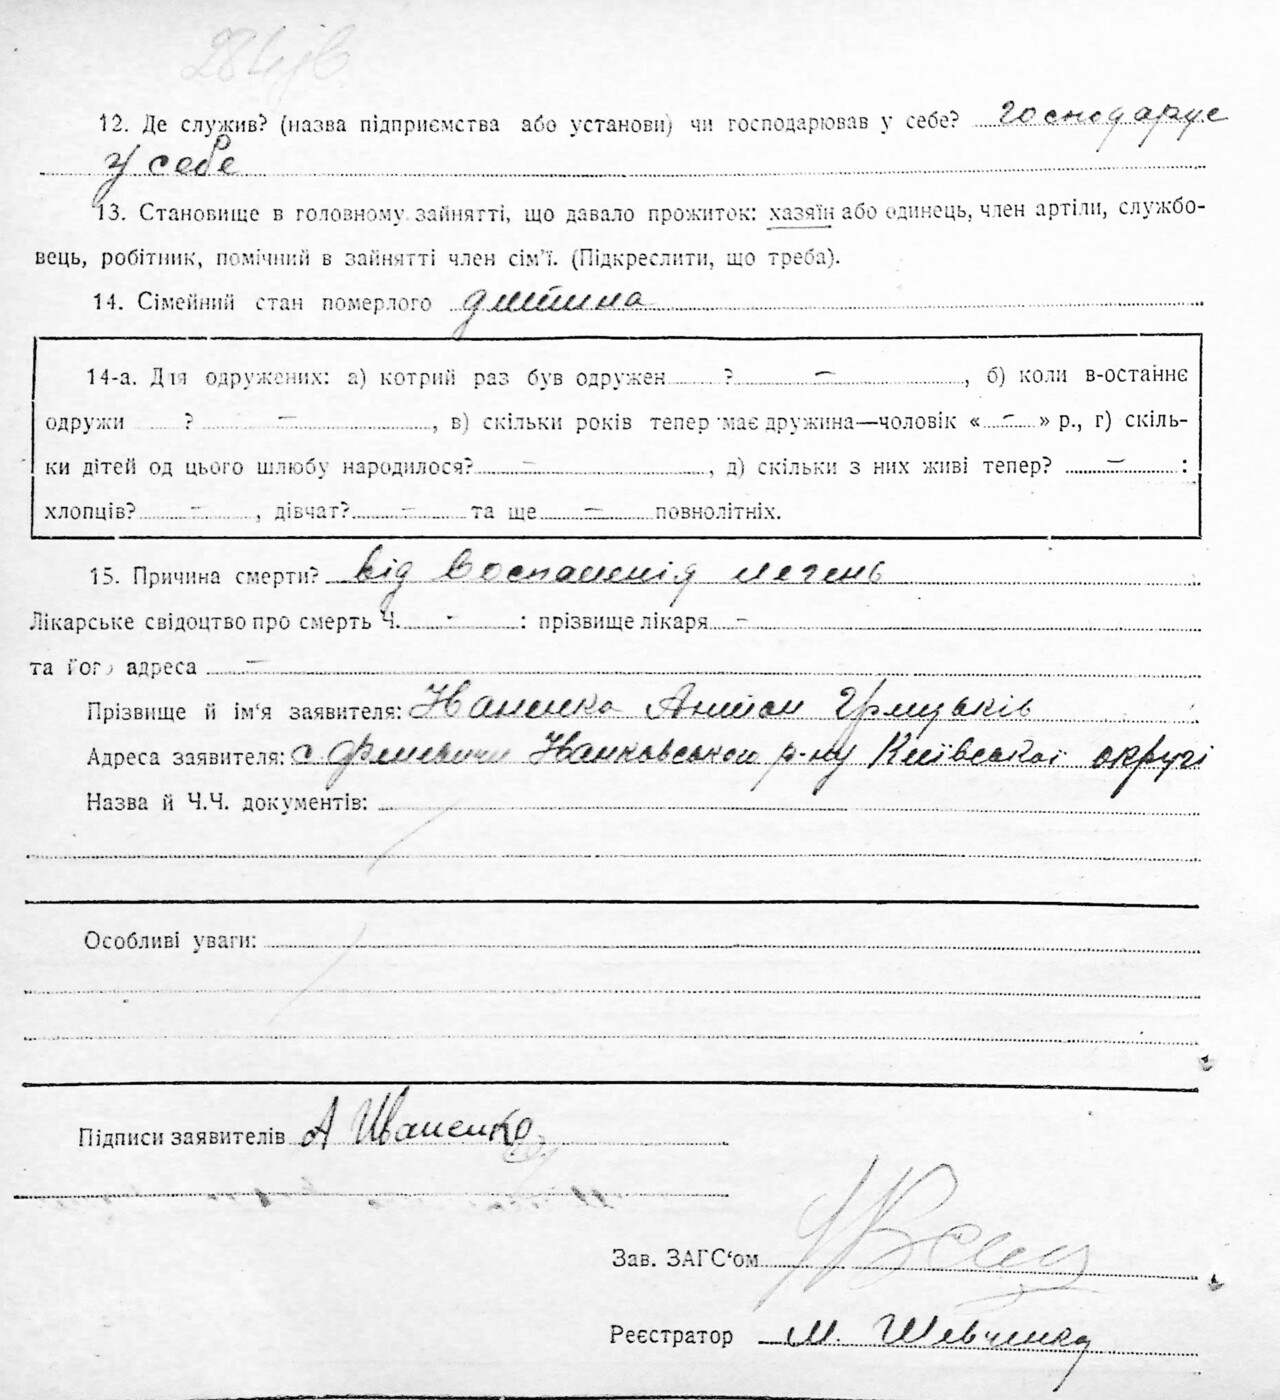 12. Де служив? (назва підприємства або установи) чи господарював у себе? господарує
у себе
13. Становище в головному зайнятті, що давало прожиток: хазяїн або одинець, член артіли, службо-
вець, робітник, помічний в зайнятті член сім'ї. (Підкреслити, що треба).
14. Сімейний стан померлого дитина
14-а. Для одружених: а) котрий раз був одружен ? –, б) коли в-останнє
одружи ? –, в) скільки років тепер має дружина—чоловік « – » р., г) скіль-
ки дітей од цього шлюбу народилося? –, д) скільки з них живі тепер? – :
хлопців? –, дівчат? – та ще – повнолітніх.
15. Причина смерти? від воспаленія легень
Лікарське свідоцтво про смерть Ч. - : прізвище лікаря –
та його адреса –
Прізвище й ім'я заявителя: Іваненко Антон Грицьків
Адреса заявителя: с. р-ну Київської округі
Назва й Ч.Ч. документів:
Особливі уваги:
Підписи заявителів А Іваненко
Зав. ЗАГС'ом
Реєстратор М. Шевченко